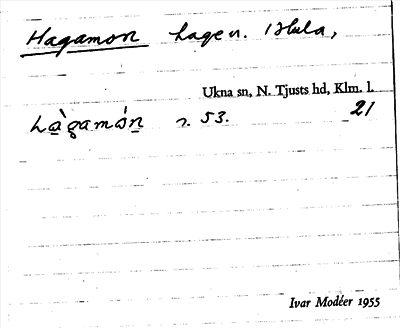 Hagamon hage n. Hula,
Ukna sn, N. Tjusts hd, Klm. l.
hàgamón n. 53. 21
Ivar Modéer 1955